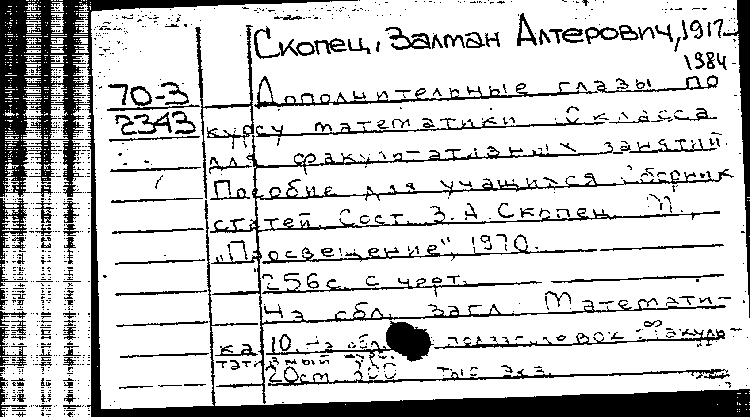 Скопец, Залман Алтерович, 1917-
1984
70-3 Дополнительные главы по
2343 курсу математики 10 класса
для факультативных занятий
Пособие для учащихся Сборник
статей. Сост. З. А. Скопец. М.,
"Просвещение", 1970.
256 с. с черт.
На обл. загл. Математи-
ка 10. На обл. подзаголовок: Факуль-
тативный курс
20 см. 300 тыс экз.